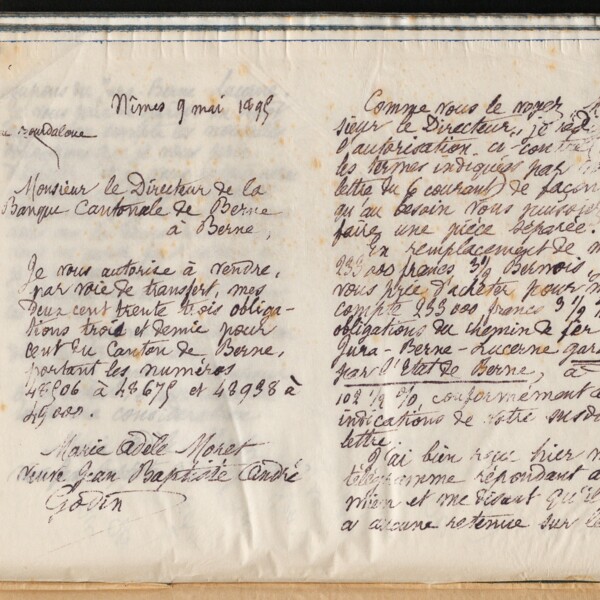 Nîmes 9 mai 1895
Bourdaloue
Monsieur le Directeur de la
Banque Cantonale de Berne
à Berne,
Je vous autorise à vendre,
par voie de transfert, mes
deux cent trente trois obliga-
tions trois et demie pour
cent du Canton de Berne,
portant les numéros
48506 à 48675 et 48938 à
49000.
Marie Adèle Moret
veuve Jean Baptiste André
Godin
Comme vous le voyez
sieur le Directeur, je
l'autorisation ci
les termes indiqués par
lettre du 6 courant de façon
qu'au besoin vous puissiez
faire une pièce séparée.
En remplacement de
233 000 francs 3 1/2 Bernois
vous prie d'acheter pour
compte 233 000 francs 3 1/2
obligations du chemin de fer
Jura-Berne-Lucerne
par l'Etat de Berne, à
102 1/2 %, conformément
indications de votre
lettre.
J'ai bien reçu hier
télégramme répondant
mien et me disant qu'il
a aucune retenue sur